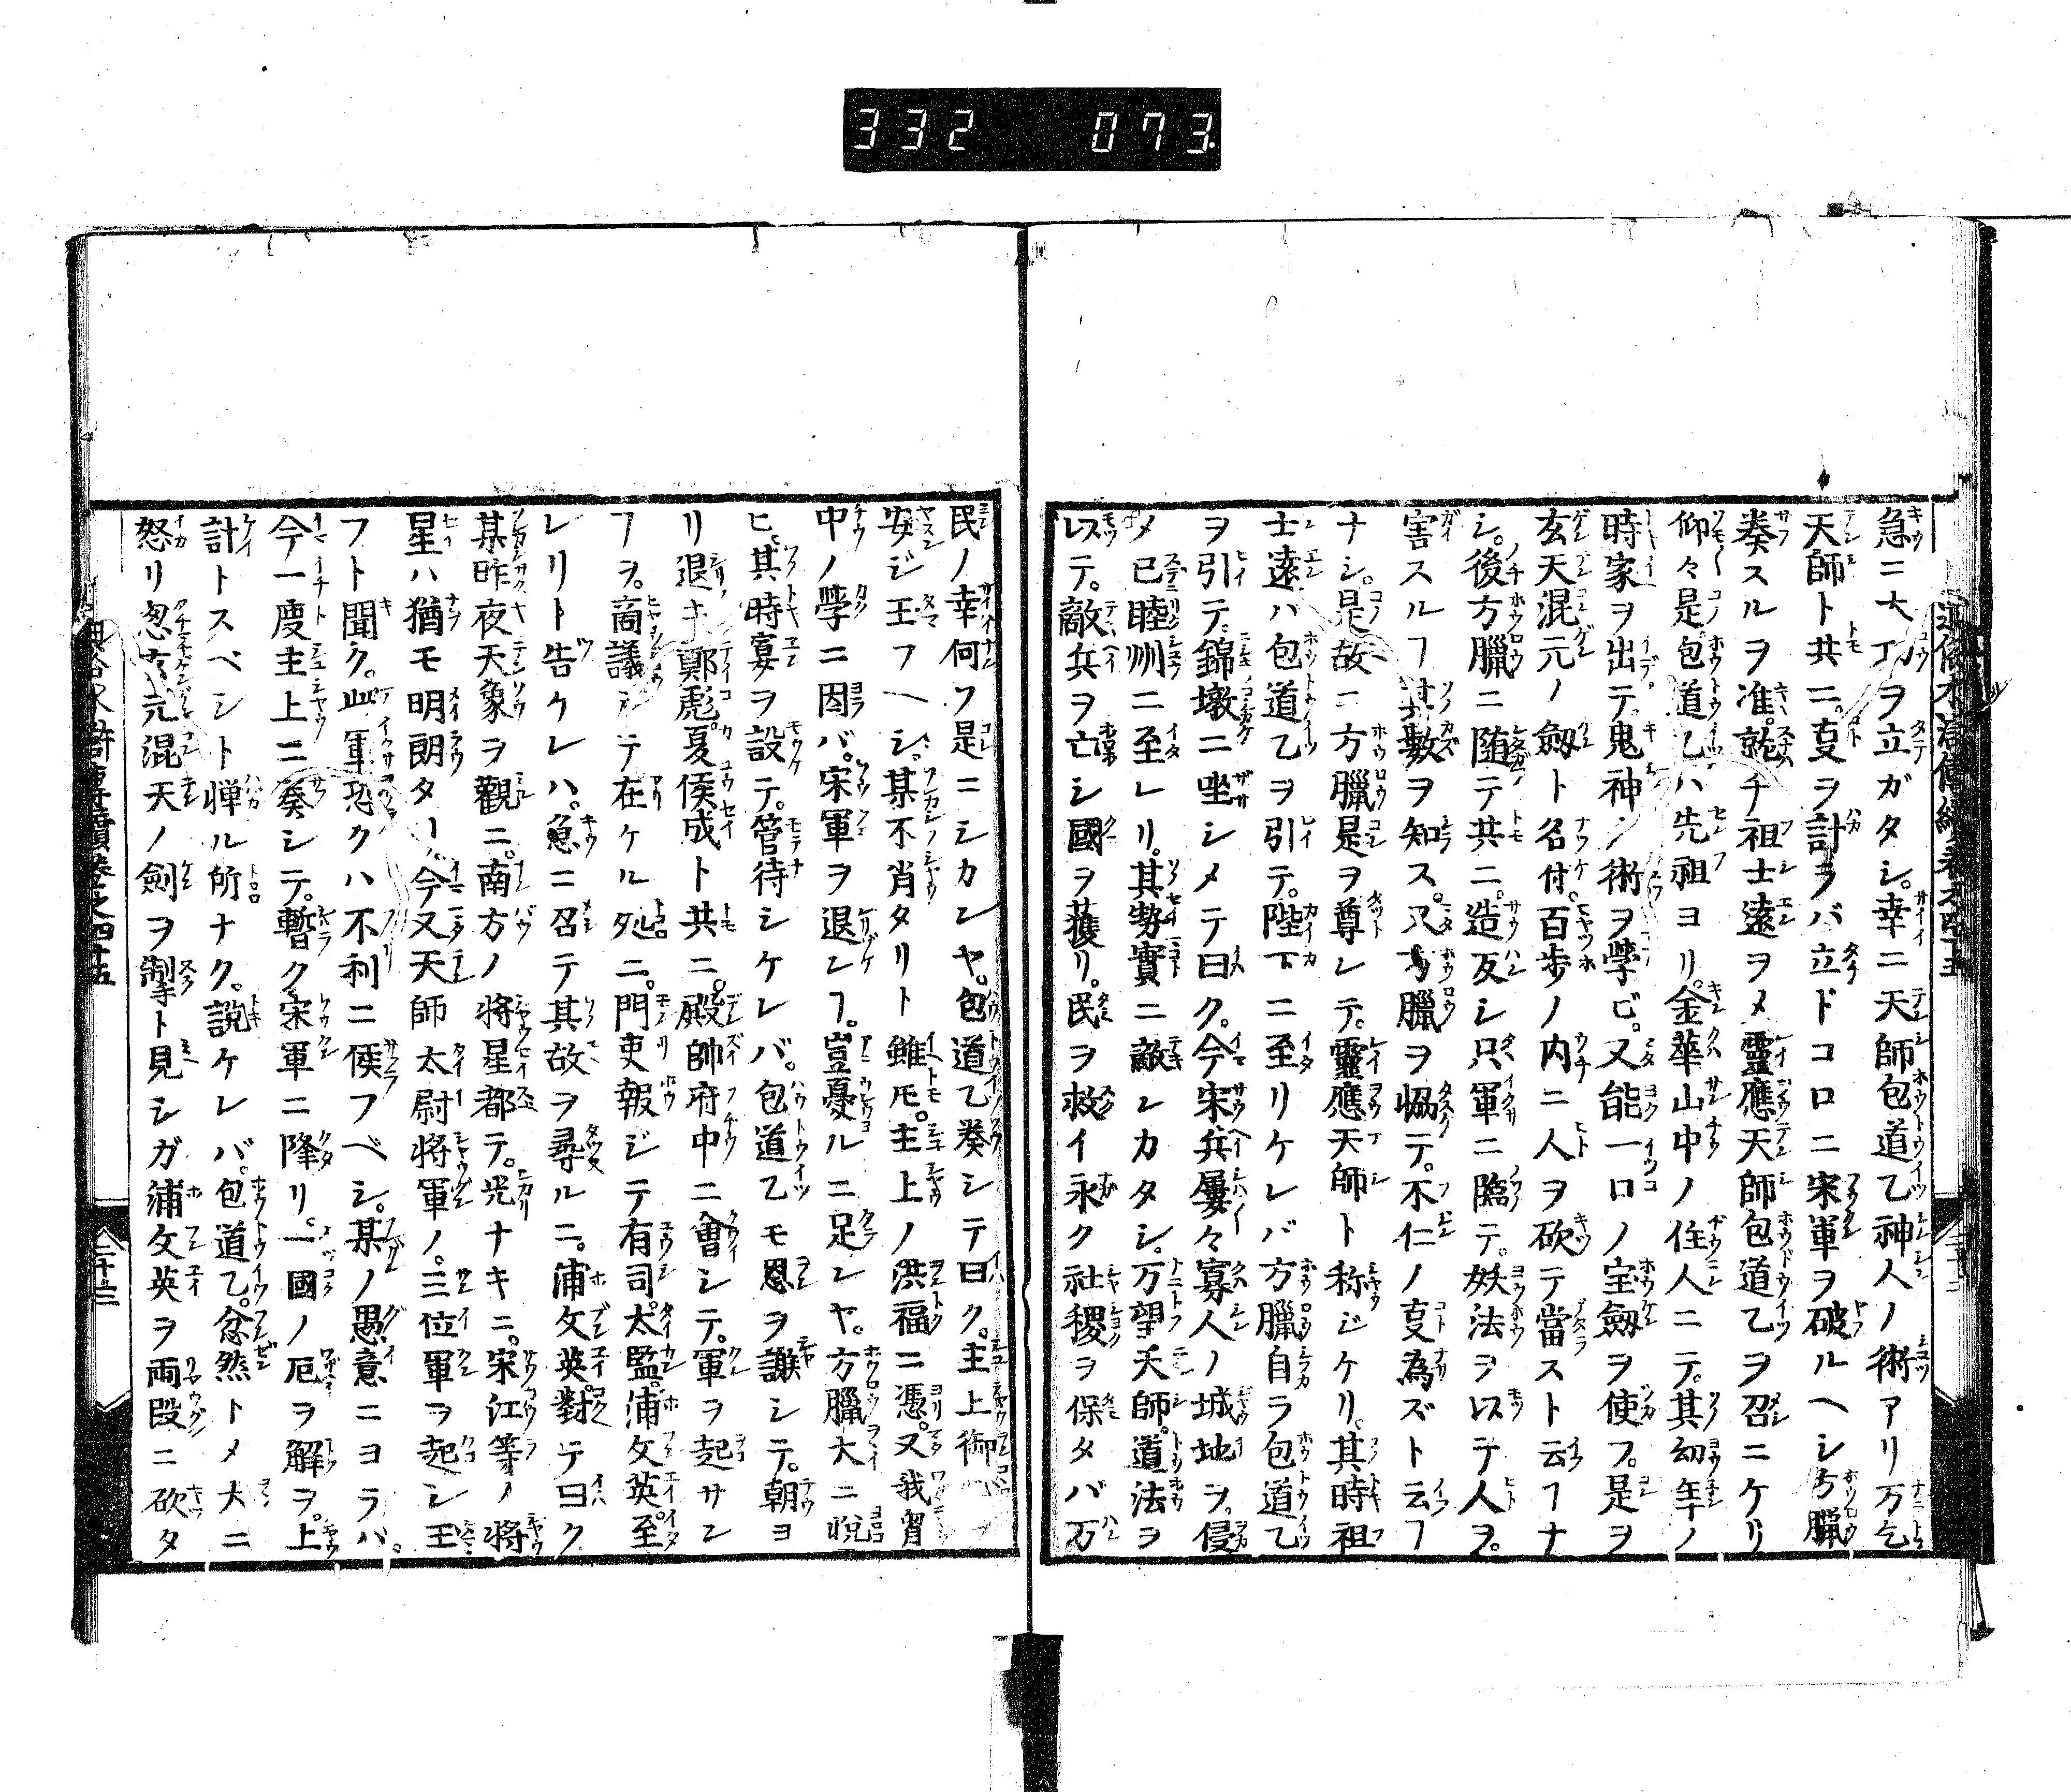 332 073
急ニ大功ヲ立ガタシ。幸ニ天師包道乙神人ノ術アリ万乞
天師ト共ニ。叓ヲ計ラバ立ドコロニ宋軍ヲ破ルヘシ方臘
奏スルヲ准。就チ祖士遠ヲメ靈應天師包道乙ヲ召ニケリ
仰々是包道乙ハ先祖ヨリ。金華山中ノ住人ニテ。其幼年ノ
時家ヲ出テ。鬼神ノ術ヲ學ビ。又能一口ノ宝劔ヲ使フ。是ヲ
玄天混元ノ劔ト名付。百歩ノ内ニ人ヲ砍テ當スト云フナ
シ。後方臘ニ随テ共ニ。造反シ只軍ニ臨テ。妖法ヲ以テ人ヲ。
害スルヿ其數ヲ知ス。又方臘ヲ恊テ。不仁ノ叓為ズト云ヿ
ナシ。是故ニ方臘是ヲ尊レテ。靈應天師ト称ジケリ。其時祖
士遠ハ包道乙ヲ引テ。陛下ニ至リケレバ方臘自ラ包道乙
ヲ引テ。錦墩ニ坐シメテ曰ク。今宋兵屢々寡人ノ城地ヲ。侵
メ已睦州ニ至レリ。其勢實ニ敵レカタシ。万望天師。道法ヲ
以テ。敵兵ヲ亡シ國ヲ護リ。民ヲ救イ永ク社稷ヲ保タバ万
民ノ幸何フ是ニシカンヤ。包道乙奏シテ曰ク。主上御
安ジ玉フヘシ。某不肖タリト雖モ。主上ノ洪福ニ憑。又我胷
中ノ學ニ因バ。宋軍ヲ退レヿ。豈憂ルニ足レヤ。方臘大ニ悦
ヒ。其時宴ヲ設テ。管待シケレバ。包道乙モ恩ヲ謝シテ。朝ヨ
リ退キ鄭彪。夏侯成ト共ニ。殿帥府中ニ會シテ。軍ヲ起サン
ヿヲ。商議シテ在ケル処ニ。門吏報ジテ有司太監。浦文英至
レリト告ケレハ。急ニ召テ其故ヲ尋ルニ。浦文英對テ曰ク
某昨夜天象ヲ觀ニ。南方ノ将星都テ。光ナキニ。宋江等ノ将
星ハ猶モ明朗タリ。今又天師太尉将軍ノ。三位軍ヲ起シ玉
フト聞ク。此軍恐クハ不利ニ候フベシ。某ノ愚意ニヨラバ。
今一度主上ニ奏シテ。暫ク宋軍ニ降リ。一國ノ厄ヲ解ヲ。上
計トスベシト憚ル所ナク。説ケレバ。包道乙。忿然トメ大ニ
怒リ忽玄元混天ノ劍ヲ掣ト見シガ浦文英ヲ両段ニ砍タ